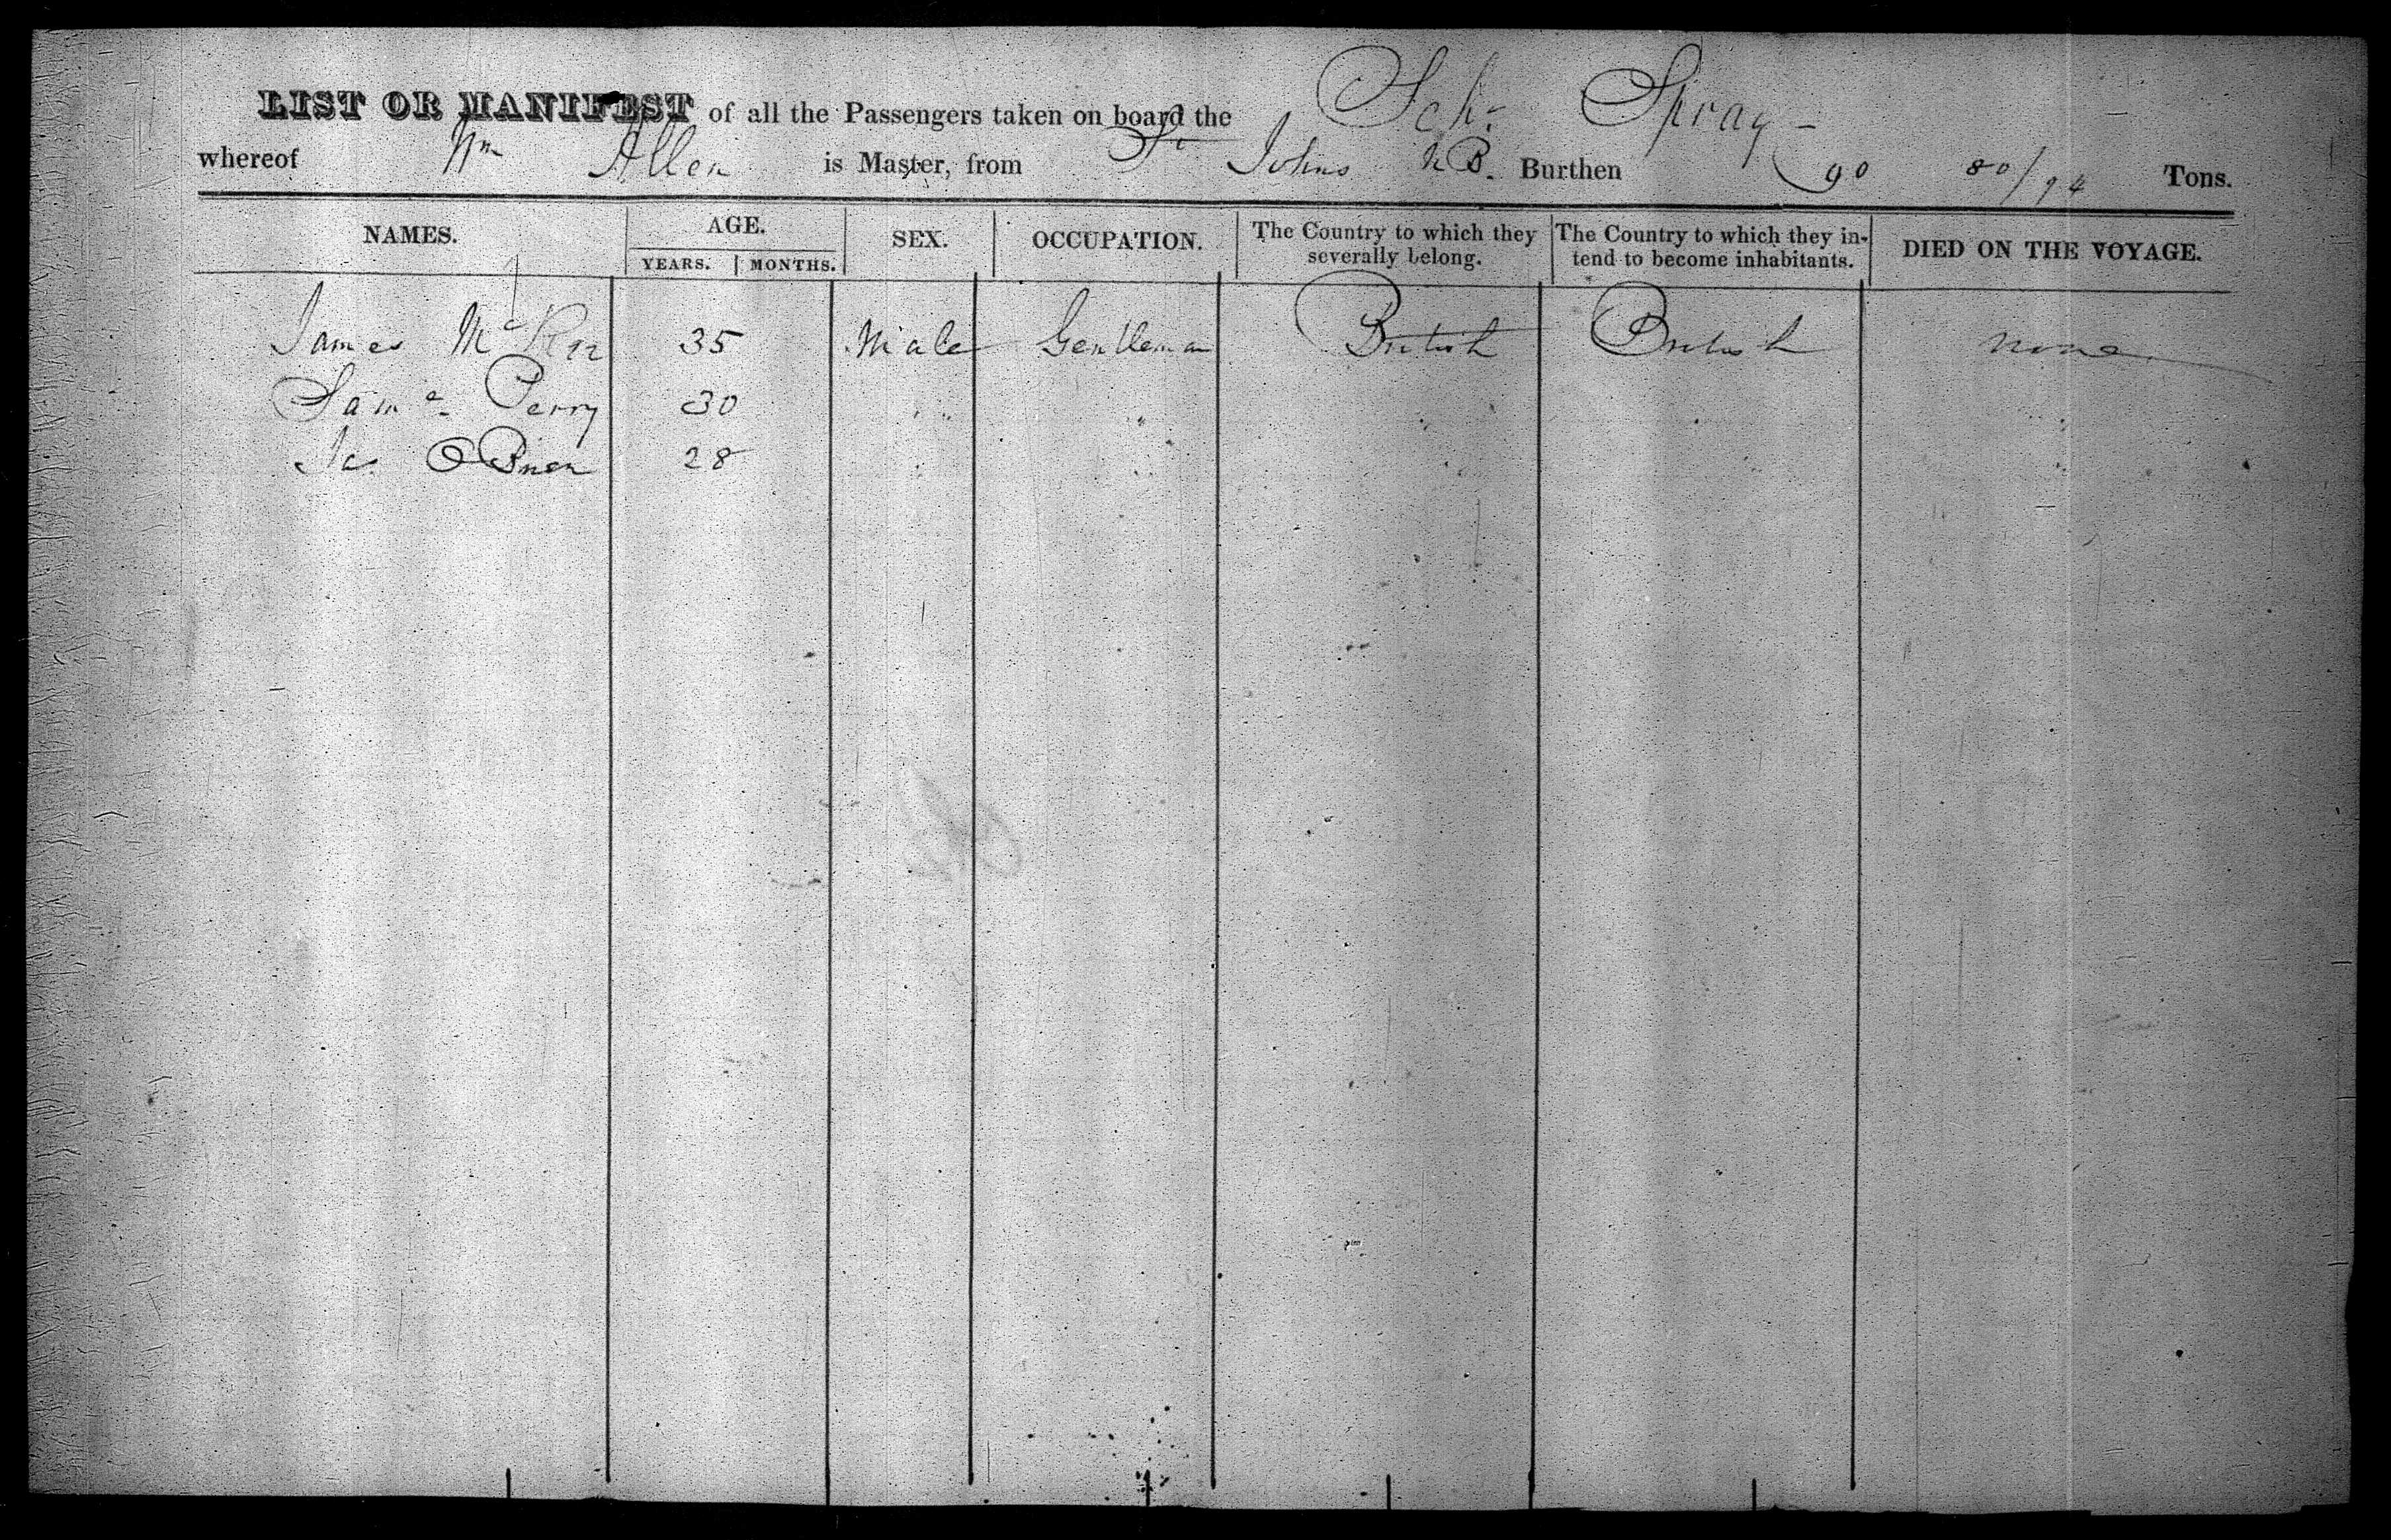 LIST OR MANIFEST of all the Passengers taken on board the Sch. Spray
whereof Wm Allen is Master, from St Johns N B. Burthen 90 80/94 Tons.
NAMES. AGE. SEX. OCCUPATION. The Country to which they severally belong. The Country to which they in-tend to become inhabitants. DIED ON THE VOYAGE.
YEARS. MONTHS.
James Mc 35 Male Gentleman British British none
Perry 30 " " " " " "
O Brien 28 " " " " " "